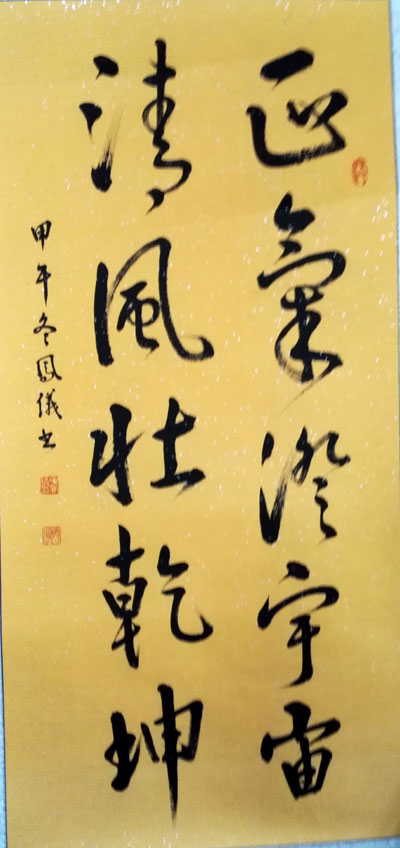 正氣澄宇宙
清風壯乾坤
甲午冬鳳儀书